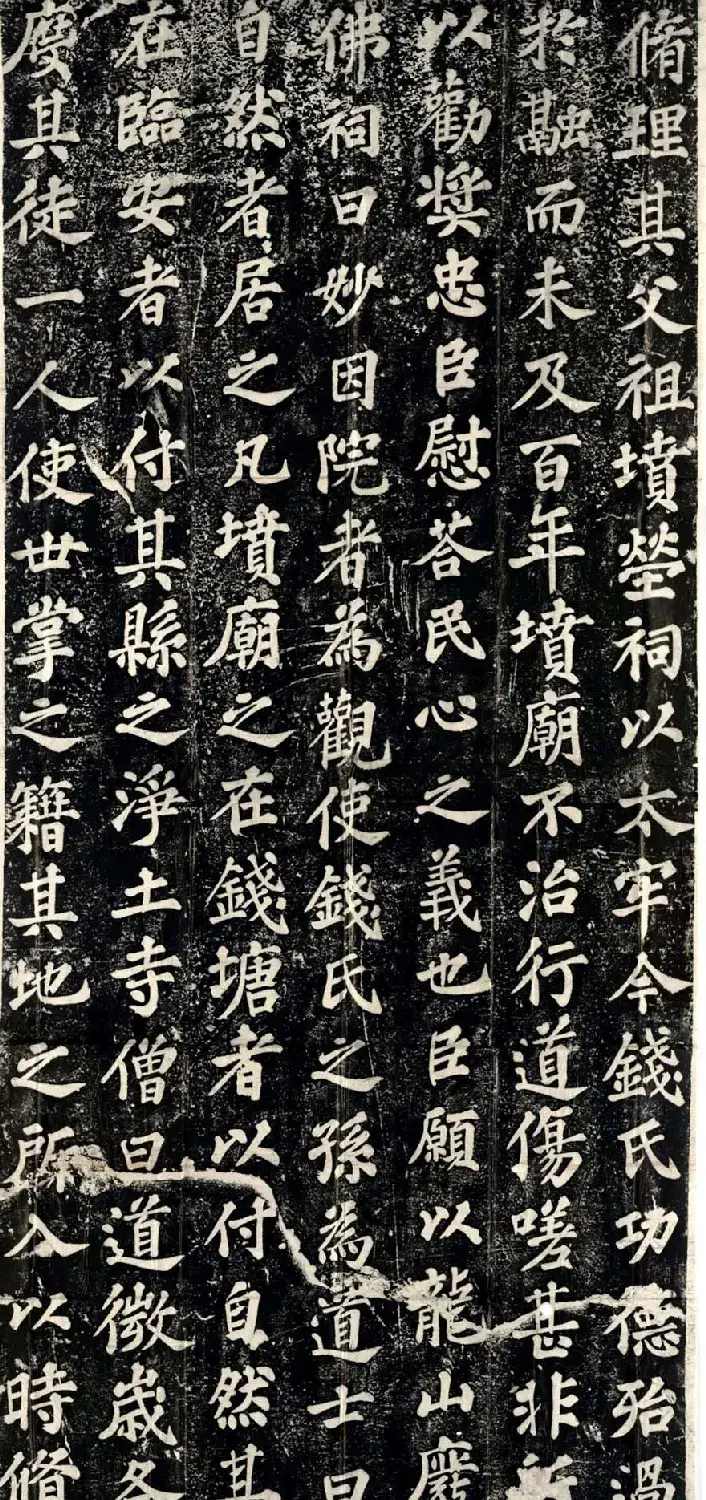 脩理其父祖墳塋祠以太牢今錢氏功德殆過
於融而未及百年墳廟不治行道傷嗟甚非所
以勸奨忠臣慰荅民心之義也臣願以龍山廢
佛祠曰妙因院者為觀使錢氏之孫為道士曰
自然者居之凡墳廟之在錢塘者以付自然其
在臨安者以付其縣之淨土寺僧曰道微歳各
度其徒一人使世掌之籍其地之所入以時脩